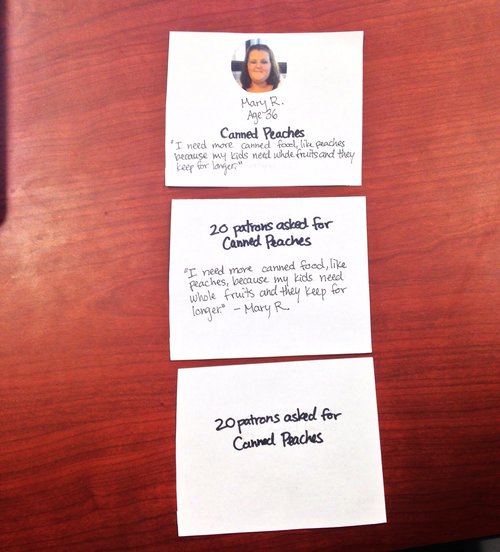 Mary R.
Age-36
Canned Peaches
"I need more canned food, like peaches
because my kids need whole fruits and they
keep for longer."
20 patrons asked for
Canned Peaches
"I need more canned food, like
peaches, because my kids need
whole fruits and they keep for
longer." - Mary R.
20 patrons asked for
Canned Peaches